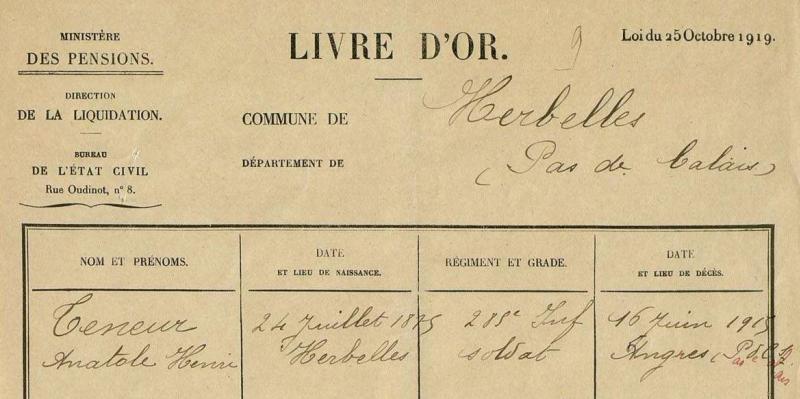 MINISTÈRE
DES PENSIONS.
DIRECTION
DE LA LIQUIDATION.
BUREAU
DE L'ÉTAT CIVIL
Rue Oudinot, nº 8.
LIVRE D'OR.
9
Loi du 25 Octobre 1919.
COMMUNE DE Herbelles
DÉPARTEMENT DE (Pas de Calais)
NOM ET PRÉNOMS.
DATE
ET LIEU DE NAISSANCE.
RÉGIMENT ET GRADE.
DATE
ET LIEU DE DÉCÈS.
Teneur
Anatole Henri
24 Juillet 1875
Herbelles
285e Inf
soldat
16 Juin 1915
Angres (P. d. C.)
Pas de Calais